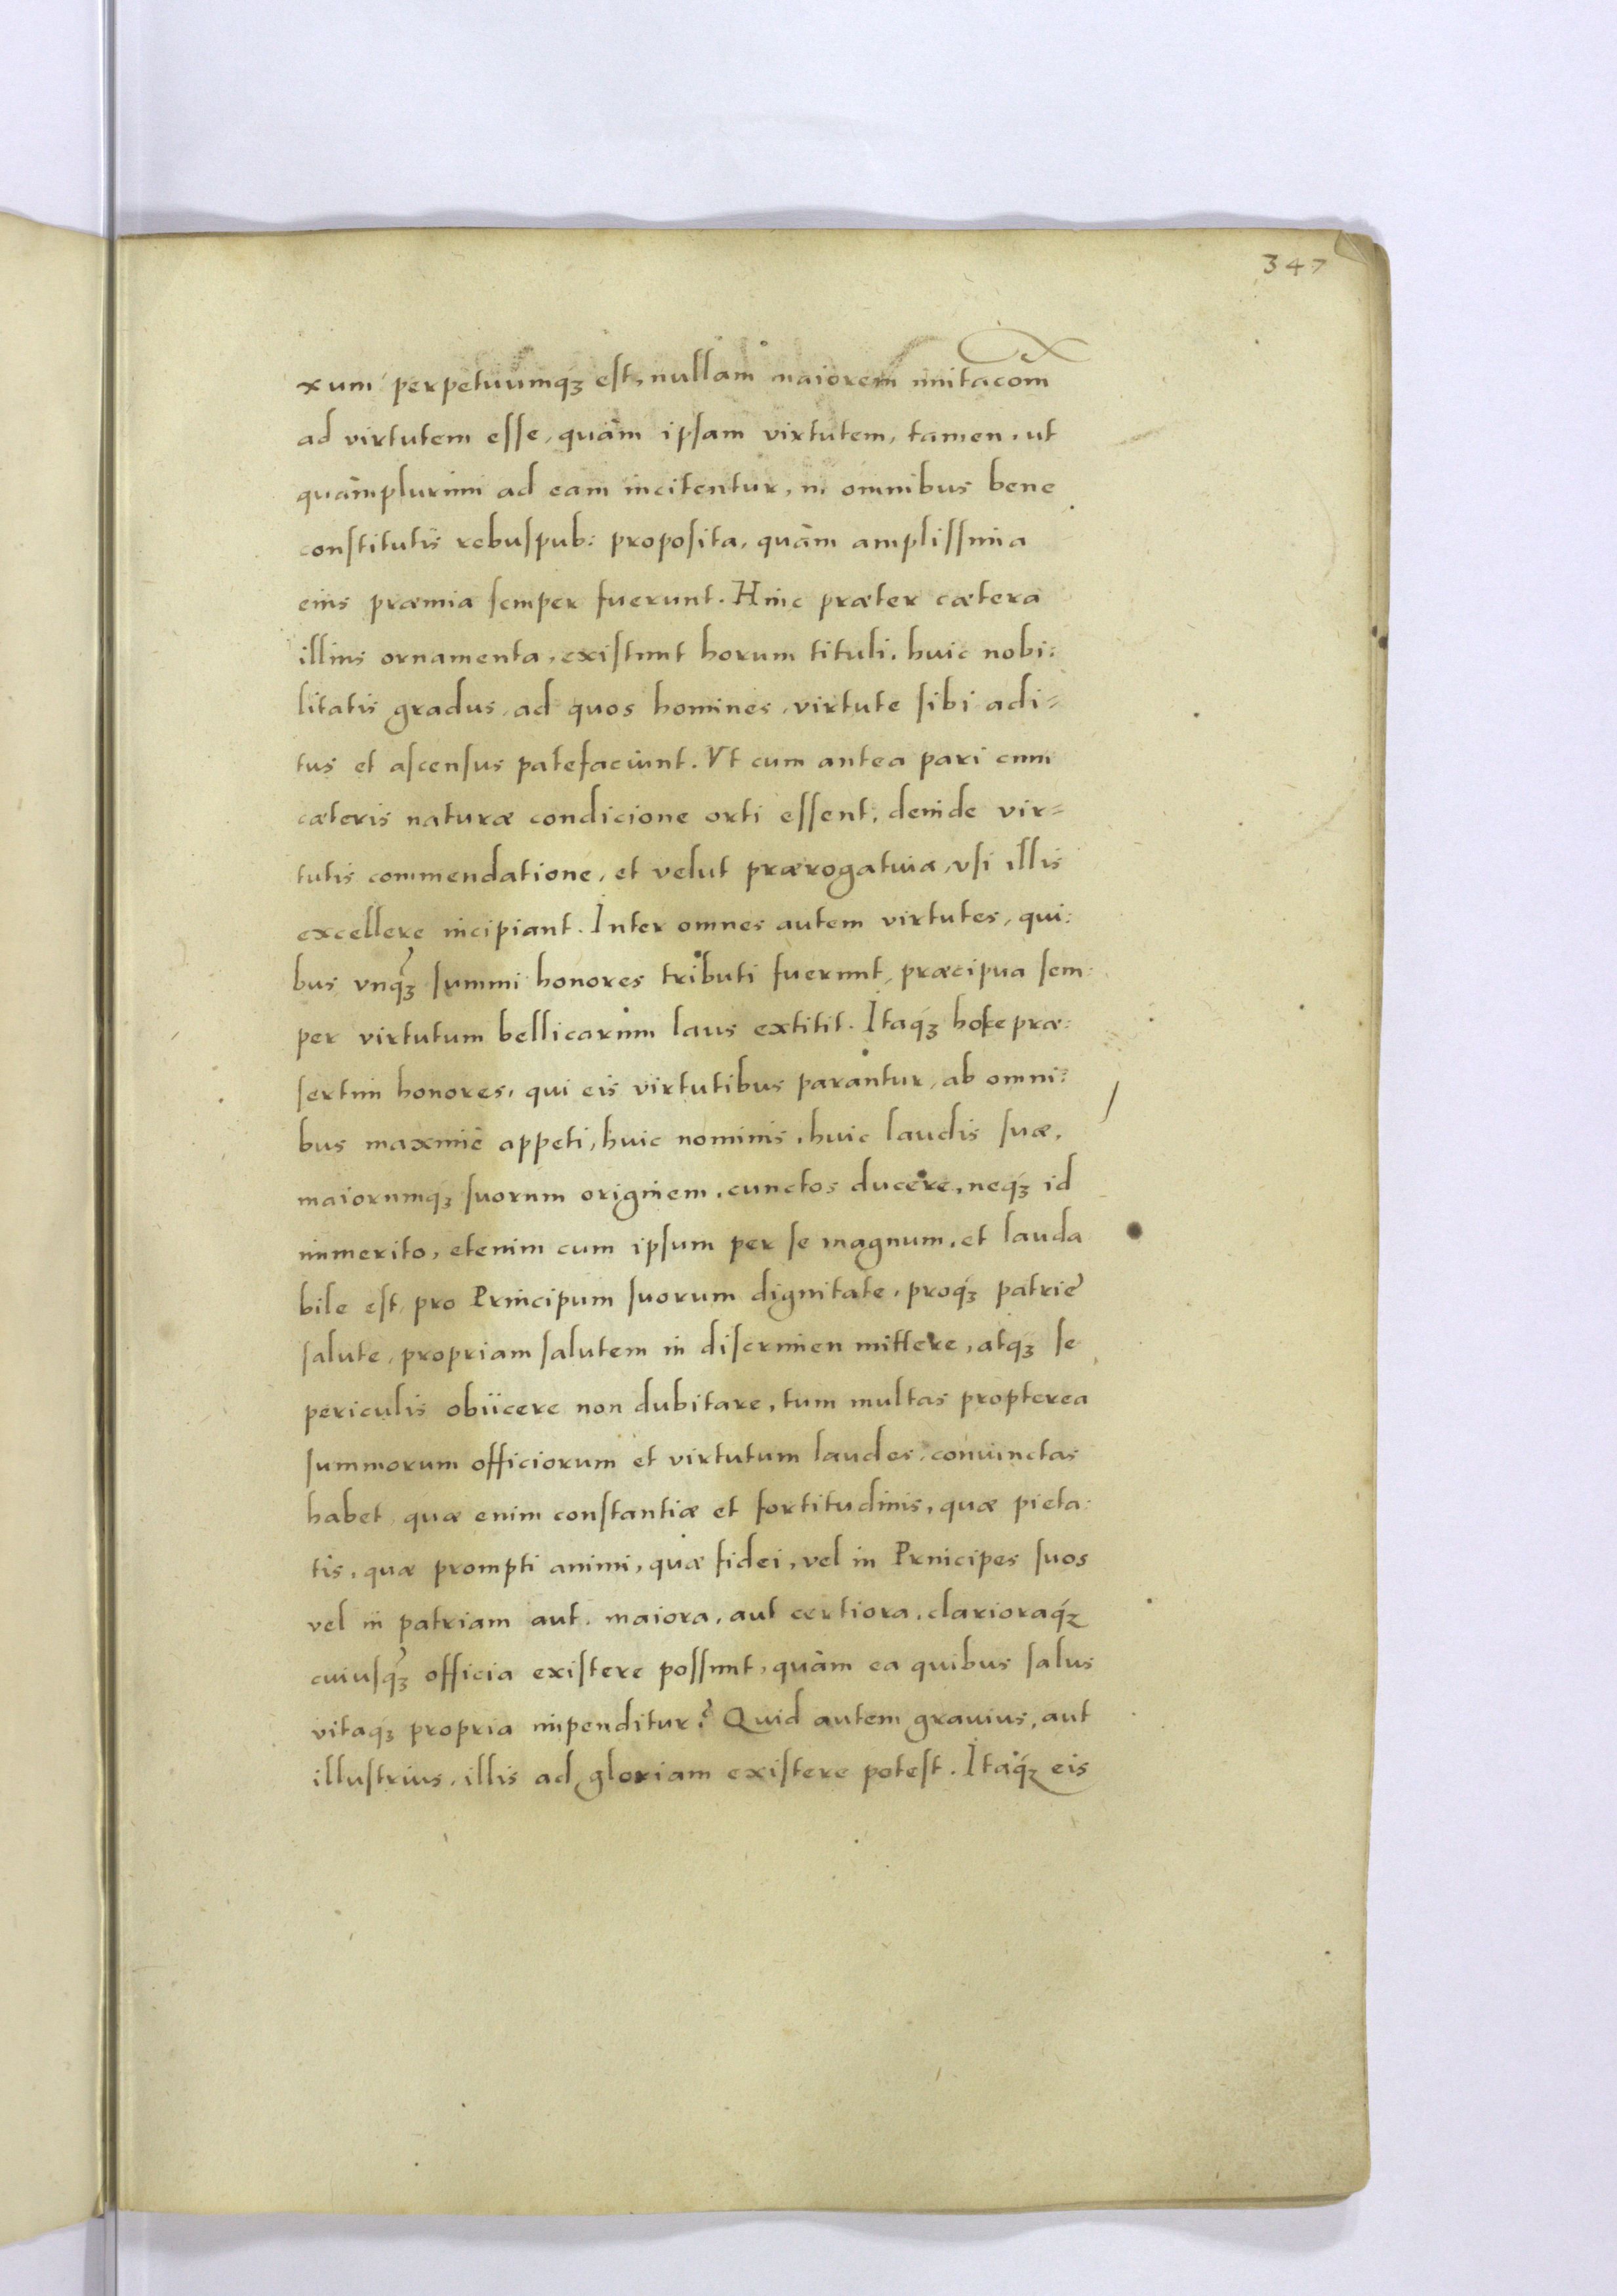 347
xum perpetuumqꝫ est, nullam maiorem inuitacom
ad virtutem esse, quàm ipsam virtutem, tamen, ut
quàmplurimi ad eam incitentur, in omnibus bene
constitutis rebuspub: proposita, quàm amplissima
eius præmia semper fuerunt. Hinc præter cætera
illius ornamenta, existunt horum tituli, huic nobi:
litatis gradus, ad quos homines, virtute sibi adi=
tus et ascensus patefaciunt. Vt cum antea pari cum
cæteris naturæ condicione orti essent, deinde vir=
tutis commendatione, et velut prærogatiua, vsi illis
excellere incipiant. Inter omnes autem virtutes, qui:
bus vnqꝫ summi honores tributi fuerunt, præcipua sem:
per virtutum bellicarum laus extitit. Itaqꝫ hosce præ:
sertim honores, qui eis virtutibus parantur, ab omni:
bus maximè appeti, huic nominis, huic laudis suæ,
maiorumqꝫ suorum originem, cunctos ducere, neqꝫ id
immerito, etenim cum ipsum per se magnum, et lauda
bile est, pro Principum suorum dignitate, proqꝫ patrie
salute, propriam salutem in discrimen mittere, atqꝫ se
periculis obiicere non dubitare, tum multas propterea
summorum officiorum et virtutum laudes, coniunctas
habet, quæ enim constantiæ et fortitudinis, quæ pieta:
tis, quæ prompti animi, quæ fidei, vel in Principes suos
vel in patriam aut. maiora, aut certiora, clarioraqꝫ
cuiusqꝫ officia existere possunt, quàm ea quibus salus
vitaqꝫ propria impenditur? Quid autem grauius, aut
illustrius, illis ad gloriam existere potest. Itaqꝫ eis